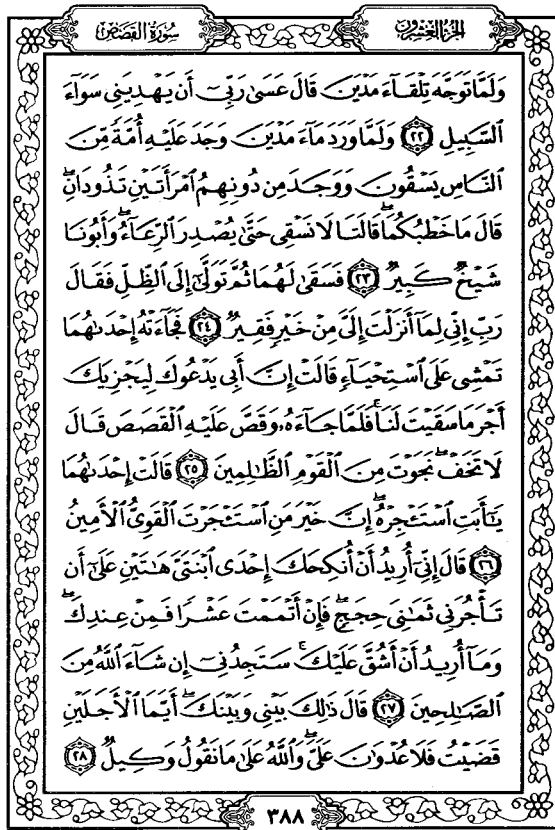 سُورَةُ القَصَصِ الجُزْءُ العِشْرُونَ
وَلَمَّا تَوَجَّهَ تِلْقَآءَ مَدْيَنَ قَالَ عَسَىٰ رَبِّيٓ أَن يَهْدِيَنِي سَوَآءَ
ٱلسَّبِيلِ ﴿٢٢﴾ وَلَمَّا وَرَدَ مَآءَ مَدْيَنَ وَجَدَ عَلَيْهِ أُمَّةً مِّنَ
ٱلنَّاسِ يَسْقُونَ وَوَجَدَ مِن دُونِهِمُ ٱمْرَأَتَيْنِ تَذُودَانِۖ
قَالَ مَا خَطْبُكُمَاۖ قَالَتَا لَا نَسْقِي حَتَّىٰ يُصْدِرَ ٱلرِّعَآءُۖ وَأَبُونَا
شَيْخٌ كَبِيرٌ ﴿٢٣﴾ فَسَقَىٰ لَهُمَا ثُمَّ تَوَلَّىٰٓ إِلَى ٱلظِّلِّ فَقَالَ
رَبِّ إِنِّي لِمَآ أَنزَلْتَ إِلَيَّ مِنْ خَيْرٍ فَقِيرٌ ﴿٢٤﴾ فَجَآءَتْهُ إِحْدَىٰهُمَا
تَمْشِي عَلَى ٱسْتِحْيَآءٍ قَالَتْ إِنَّ أَبِي يَدْعُوكَ لِيَجْزِيَكَ
أَجْرَ مَا سَقَيْتَ لَنَاۚ فَلَمَّا جَآءَهُۥ وَقَصَّ عَلَيْهِ ٱلْقَصَصَ قَالَ
لَا تَخَفْۖ نَجَوْتَ مِنَ ٱلْقَوْمِ ٱلظَّٰلِمِينَ ﴿٢٥﴾ قَالَتْ إِحْدَىٰهُمَا
يَٰٓأَبَتِ ٱسْتَـْٔجِرْهُۖ إِنَّ خَيْرَ مَنِ ٱسْتَـْٔجَرْتَ ٱلْقَوِيُّ ٱلْأَمِينُ
﴿٢٦﴾ قَالَ إِنِّيٓ أُرِيدُ أَنْ أُنكِحَكَ إِحْدَى ٱبْنَتَيَّ هَٰتَيْنِ عَلَىٰٓ أَن
تَأْجُرَنِي ثَمَٰنِيَ حِجَجٍۖ فَإِنْ أَتْمَمْتَ عَشْرًا فَمِنْ عِندِكَۖ
وَمَآ أُرِيدُ أَنْ أَشُقَّ عَلَيْكَۚ سَتَجِدُنِيٓ إِن شَآءَ ٱللَّهُ مِنَ
ٱلصَّٰلِحِينَ ﴿٢٧﴾ قَالَ ذَٰلِكَ بَيْنِي وَبَيْنَكَۖ أَيَّمَا ٱلْأَجَلَيْنِ
قَضَيْتُ فَلَا عُدْوَٰنَ عَلَيَّۖ وَٱللَّهُ عَلَىٰ مَا نَقُولُ وَكِيلٌ ﴿٢٨﴾
٣٨٨